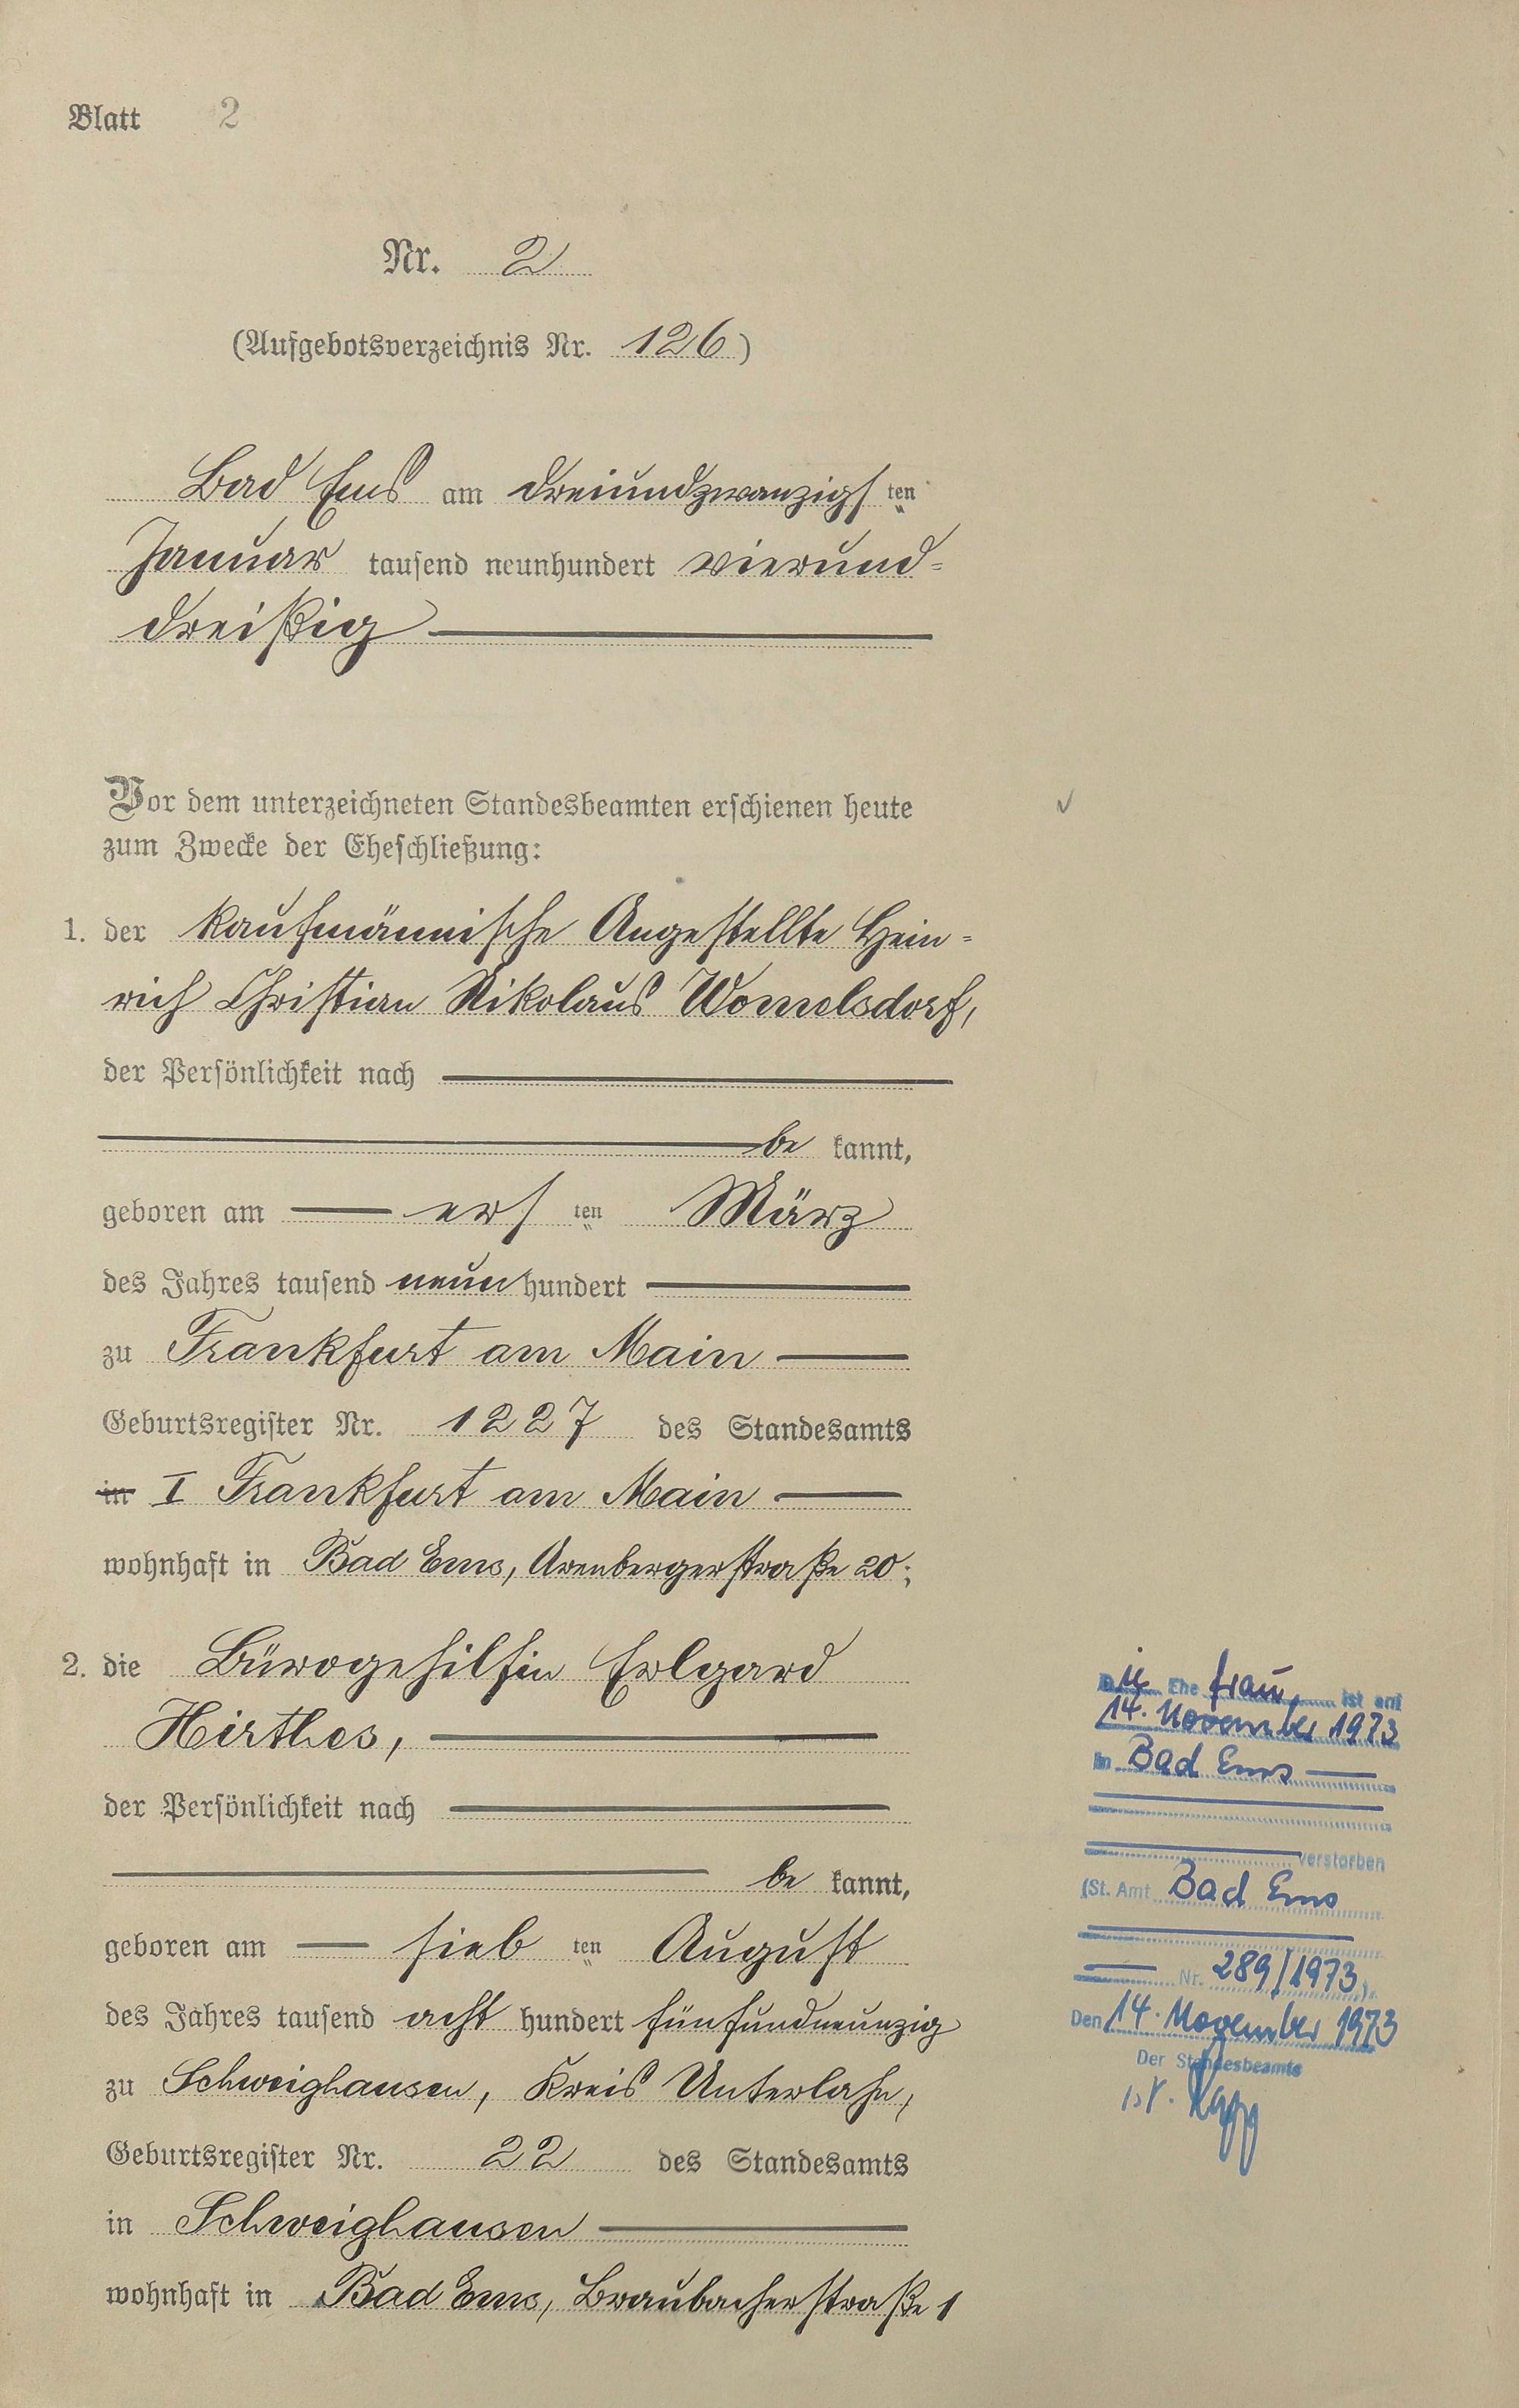 Blatt 2
Nr. 2
(Aufgebotsverzeichnis Nr. 126)
Bad Ems am dreiundzwanzigsten
Januar tausend neunhundert vierund-
dreißig
Vor dem unterzeichneten Standesbeamten erschienen heute
zum Zwecke der Eheschließung:
1. der kaufmännische Angestellte Hein-
rich Christian Nikolaus Womelsdorf,
der Persönlichkeit nach
be kannt,
geboren am ersten März
des Jahres tausend neun hundert
zu Frankfurt am Main
Geburtsregister Nr. 1227 des Standesamts
in I Frankfurt am Main
wohnhaft in Bad Ems, Arenbergerstraße 20;
2. die Bürogehilfin Erlgard
Hirthes,
der Persönlichkeit nach
be kannt,
geboren am siebten August
des Jahres tausend acht hundert fünfundneunzig
zu Schweighausen, Kreis Unterlahn,
Geburtsregister Nr. 22 des Standesamts
in Schweighausen
wohnhaft in Bad Ems, Braubacherstraße 1
Die Ehefrau ist am
14. November 1973
in Bad Ems
verstorben
(St. Amt Bad Ems
Nr. 289/1973)
Den 14. November 1973
Der Standesbeamte